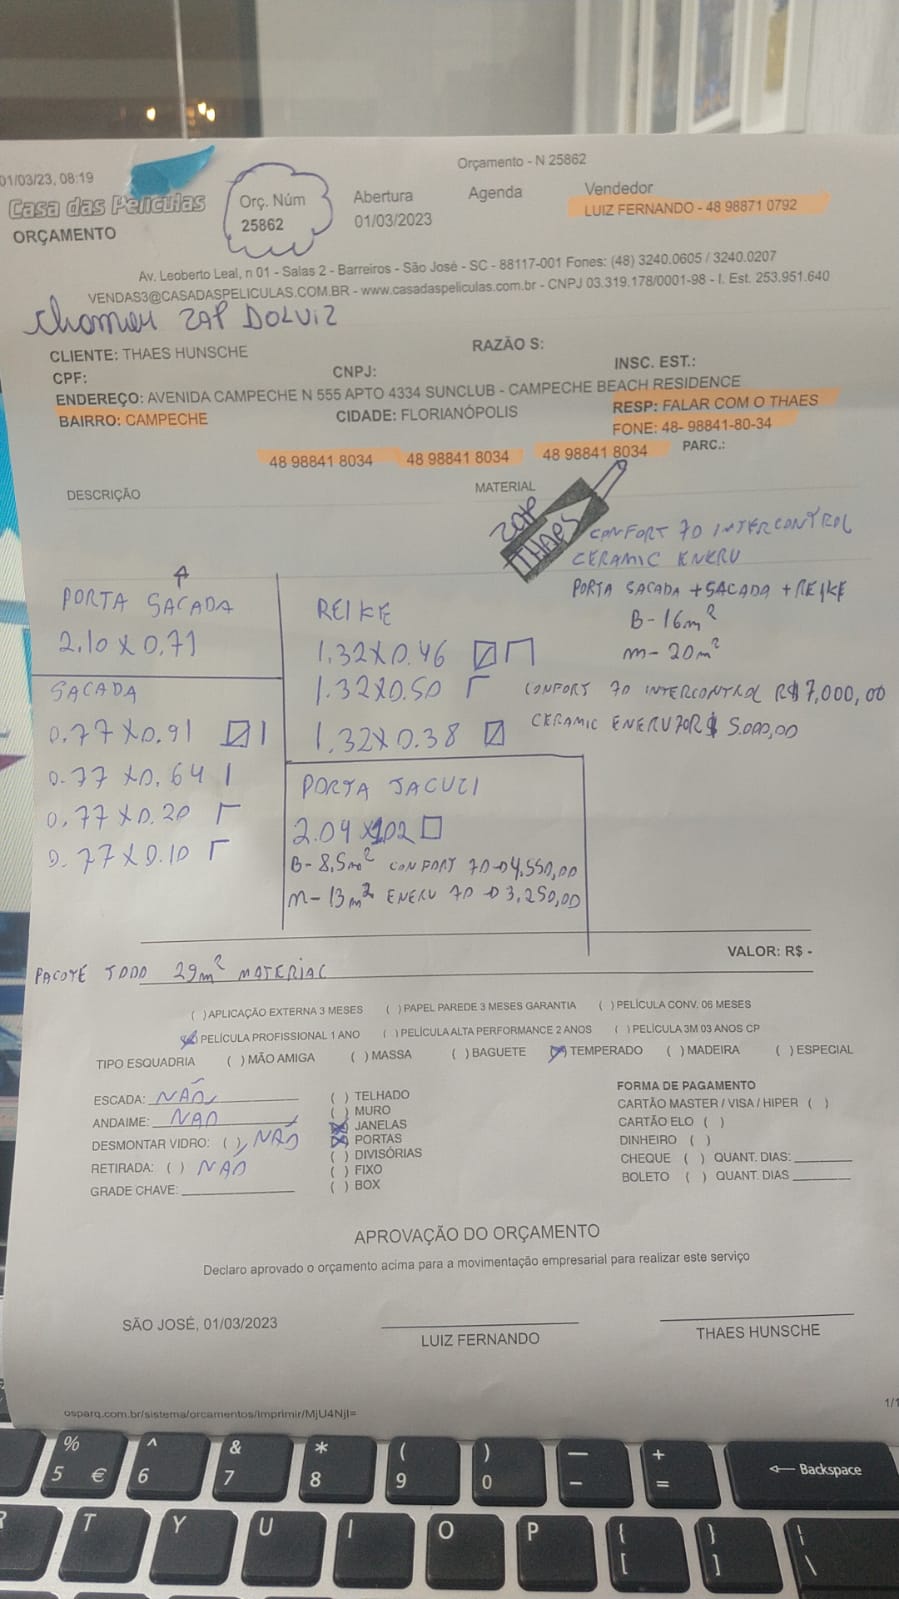 Orçamento - N 25862
01/03/23, 08:19
Casa das Películas
ORÇAMENTO
Orç. Núm
25862
Abertura
01/03/2023
Agenda
Vendedor
LUIZ FERNANDO - 48 98871 0792
Av. Leoberto Leal, n 01 - Salas 2 - Barreiros - São José - SC - 88117-001 Fones: (48) 3240.0605 / 3240.0207
VENDAS3@CASADASPELICULAS.COM.BR - www.casadaspeliculas.com.br - CNPJ 03.319.178/0001-98 - I. Est. 253.951.640
ZAP DO LUIZ
CLIENTE: THAES HUNSCHE
RAZÃO S:
CPF:
CNPJ:
INSC. EST.:
ENDEREÇO: AVENIDA CAMPECHE N 555 APTO 4334 SUNCLUB - CAMPECHE BEACH RESIDENCE
BAIRRO: CAMPECHE
CIDADE: FLORIANÓPOLIS
RESP: FALAR COM O THAES
FONE: 48- 98841-80-34
48 98841 8034 48 98841 8034 48 98841 8034 PARC.:
DESCRIÇÃO
MATERIAL
ZAP
THAES
CONFORT 70 INTERCONTROL
CERAMIC ENERU
PORTA SACADA + SACADA + REIKE
B - 16m²
m - 20m²
CONFORT 70 INTERCONTROL R$ 7,000,00
CERAMIC ENERU 70 R$ 5.000,00
PORTA SACADA
2.10 X 0.71
SACADA
0.77 X 0.91
0.77 X 0.64
0.77 X 0.20
0.77 X 0.10
REIKE
1.32 X 0.46
1.32 X 0.50
1.32 X 0.38
PORTA JACUZI
2.04 X 102
B - 8,5m² CONFORT 70 → 4,550,00
m - 13m² ENERU 70 → 3,250,00
VALOR: R$ -
PACOTE TODO 29m² MATERIAL
( ) APLICAÇÃO EXTERNA 3 MESES ( ) PAPEL PAREDE 3 MESES GARANTIA ( ) PELÍCULA CONV. 06 MESES
(X) PELÍCULA PROFISSIONAL 1 ANO ( ) PELÍCULA ALTA PERFORMANCE 2 ANOS ( ) PELÍCULA 3M 03 ANOS CP
TIPO ESQUADRIA ( ) MÃO AMIGA ( ) MASSA ( ) BAGUETE (X) TEMPERADO ( ) MADEIRA ( ) ESPECIAL
ESCADA: NÃO
ANDAIME: NÃO
DESMONTAR VIDRO: ( ) NÃO
RETIRADA: ( ) NÃO
GRADE CHAVE:
( ) TELHADO
( ) MURO
(X) JANELAS
(X) PORTAS
( ) DIVISÓRIAS
( ) FIXO
( ) BOX
FORMA DE PAGAMENTO
CARTÃO MASTER / VISA / HIPER ( )
CARTÃO ELO ( )
DINHEIRO ( )
CHEQUE ( ) QUANT. DIAS:
BOLETO ( ) QUANT. DIAS
APROVAÇÃO DO ORÇAMENTO
Declaro aprovado o orçamento acima para a movimentação empresarial para realizar este serviço
SÃO JOSÉ, 01/03/2023
LUIZ FERNANDO
THAES HUNSCHE
osparq.com.br/sistema/orcamentos/imprimir/MjU4NjI=
1/1
% 5 €
^ 6
& 7
* 8
( 9
) 0
— –
+ =
← Backspace
R T Y U I O P { [ } ] ¦ \